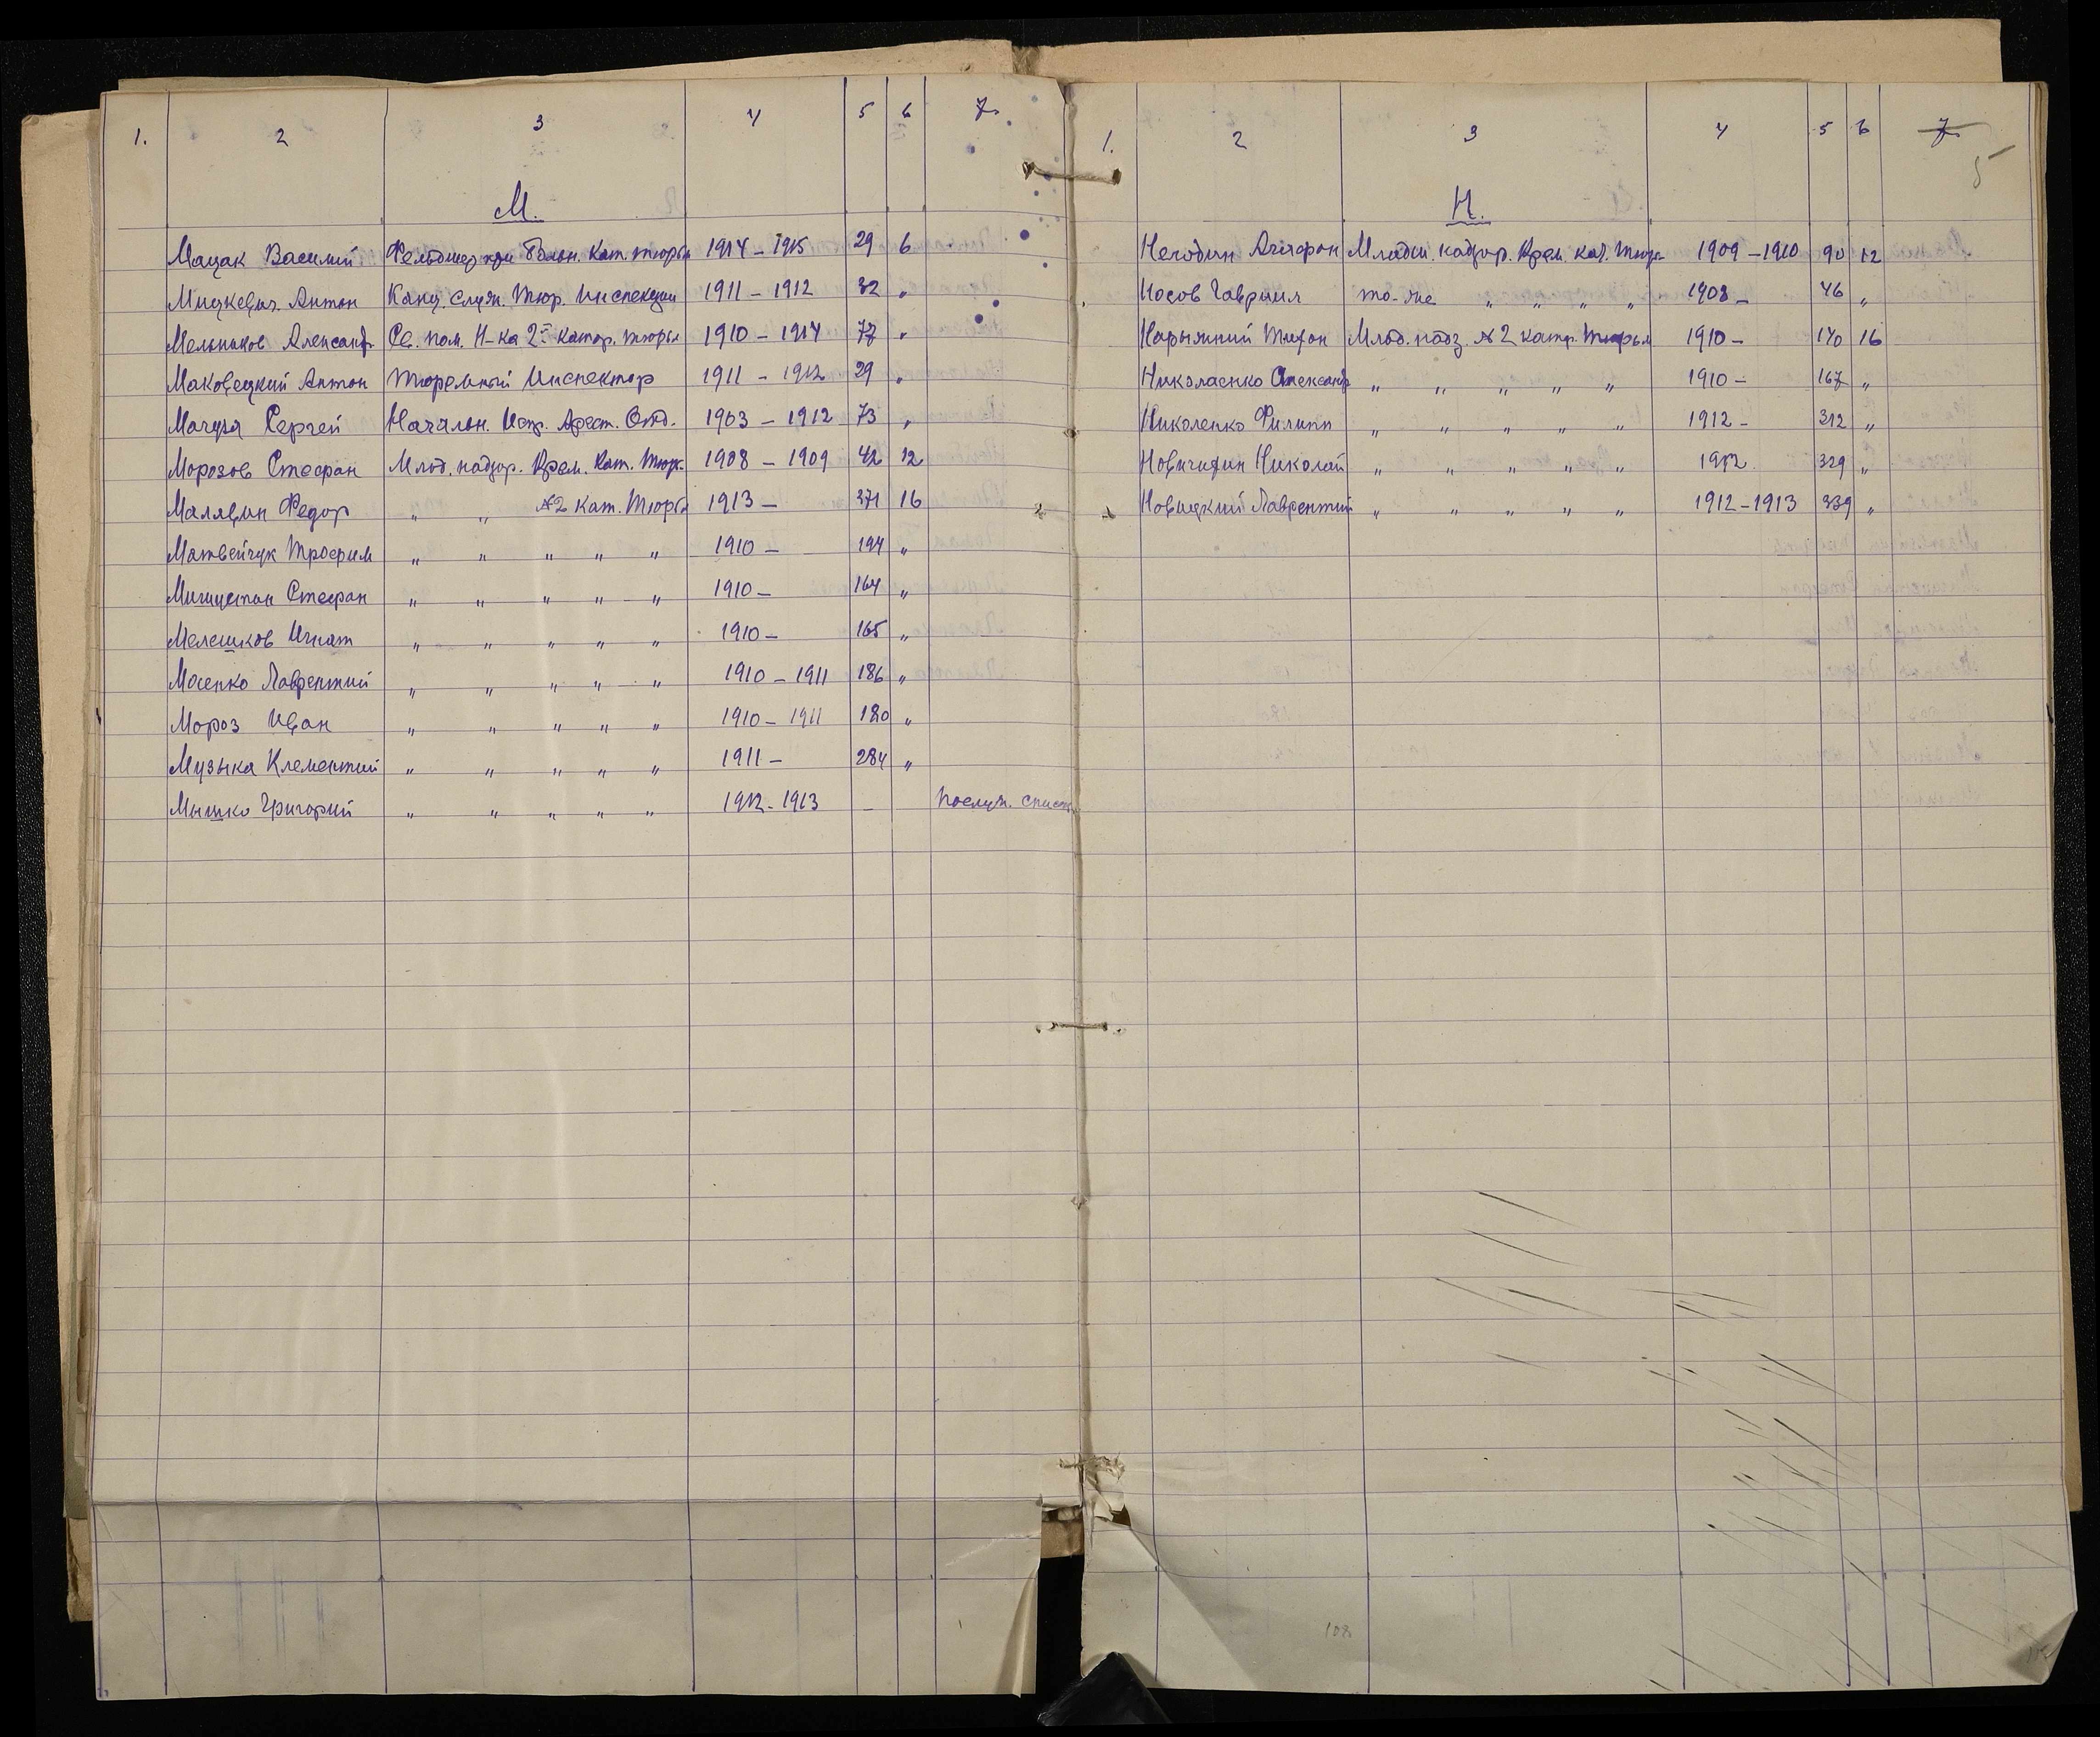 1. 2 3 4 5 6 7.
М.
Мацак Василий Фельдшер при больн. Кат. тюрьм 1914 – 1915 29 6
Мицкевич. Антон Канц. служ. Тюр. Инспекции 1911 – 1912 32 „
Мельников Александ. Св. пом. Н-ка 2й катор. тюрьм 1910 – 1914 77 „
Маковецкий Антон Тюремный Инспектор 1911 – 1912 29 „
Мачуля Сергей Начальн. Испр. Арест. Отд. 1903 – 1912 73 „
Морозов Стефан Млад. надзор. Врем. Кат. Тюрь. 1908 – 1909 42 12
Малявин Федор „ „ №2 Кат. Тюрьм 1913 – 371 16
Матвейчук Трофим „ „ „ „ „ 1910 – 194 „
Стефан „ „ „ „ „ 1910 – 164 „
Мелешков Игнат „ „ „ „ „ 1910 – 165 „
Мосенко Лаврентий „ „ „ „ „ 1910 – 1911 186 „
Мороз Иван „ „ „ „ „ 1910 – 1911 180 „
Музыка Клементий „ „ „ „ „ 1911 – 284 „
Мышко Григорий „ „ „ „ „ 1912 – 1913 – Послуж. список
1. 2 3 4 5 6 7.
5
Н.
Негодин Агафон Младш. надзор. Врем. кат. Тюрь. 1909 – 1910 90 12
Носов Гавриил то-же „ „ „ „ 1908 – 46 „
Нарыжний Тихон Млад. надз. №2 катр. Тюрьм 1910 – 140 16
Николаенко Александр „ „ „ „ „ 1910 – 167 „
Николенко Филипп „ „ „ „ „ 1912 – 312 „
Николай „ „ „ „ „ 1912 329 „
Новицкий Лаврентий „ „ „ „ „ 1912 – 1913 339 „
108